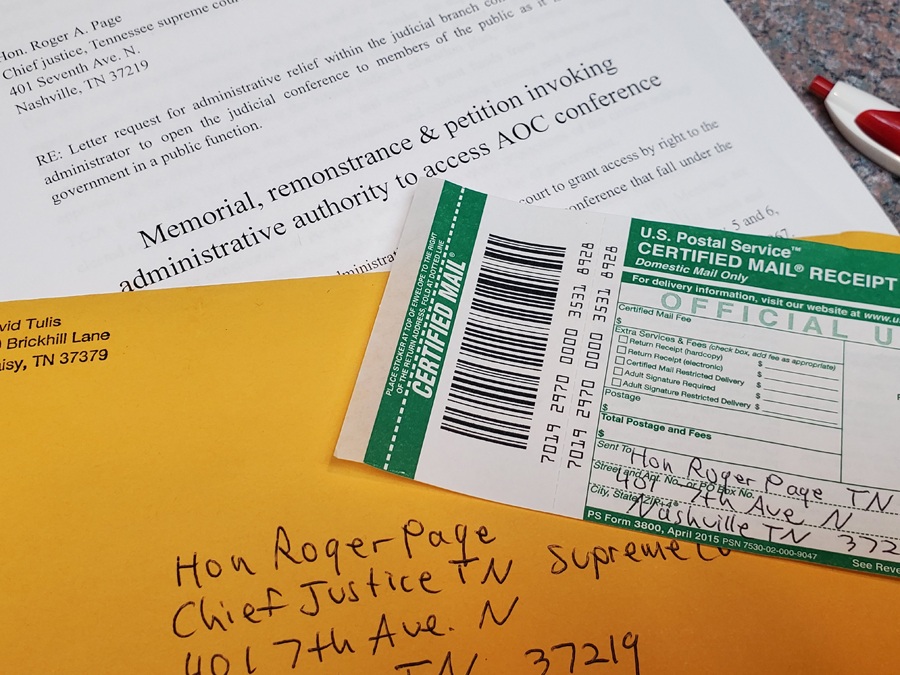 Hon. Roger A. Page
Chief justice, Tennessee supreme
401 Seventh Ave. N.
Nashville, TN 37219
RE: Letter request for administrative relief within the judicial branch
administrator to open the judicial conference to members of the public as it
government in a public function.
Memorial, remonstrance & petition invoking
administrative authority to access AOC conference
court to grant access by right to the
conference that fall under the
5 and 6,
vid Tulis
Brickhill Lane
aisy, TN 37379
PLACE STICKER AT TOP OF ENVELOPE TO THE RIGHT
OF THE RETURN ADDRESS, FOLD AT DOTTED LINE
CERTIFIED MAIL®
7019 2970 0000 3531 8928
7019 2970 0000 3531 8928
U.S. Postal Service™
CERTIFIED MAIL® RECEIPT
Domestic Mail Only
For delivery information, visit our website at www.us
OFFICIAL U
Certified Mail Fee
$
Extra Services & Fees (check box, add fee as appropriate)
Return Receipt (hardcopy) $
Return Receipt (electronic) $
Certified Mail Restricted Delivery $
Adult Signature Required $
Adult Signature Restricted Delivery $
Postage
$
Total Postage and Fees
$
Sent To Hon Roger Page TN
Street and Apt. No., or PO Box No. 401 7th Ave N
City, State, ZIP+4® Nashville TN 372
PS Form 3800, April 2015 PSN 7530-02-000-9047
See Reve
Hon Roger Page
Chief Justice TN Supreme
401 7th Ave. N
TN 37219